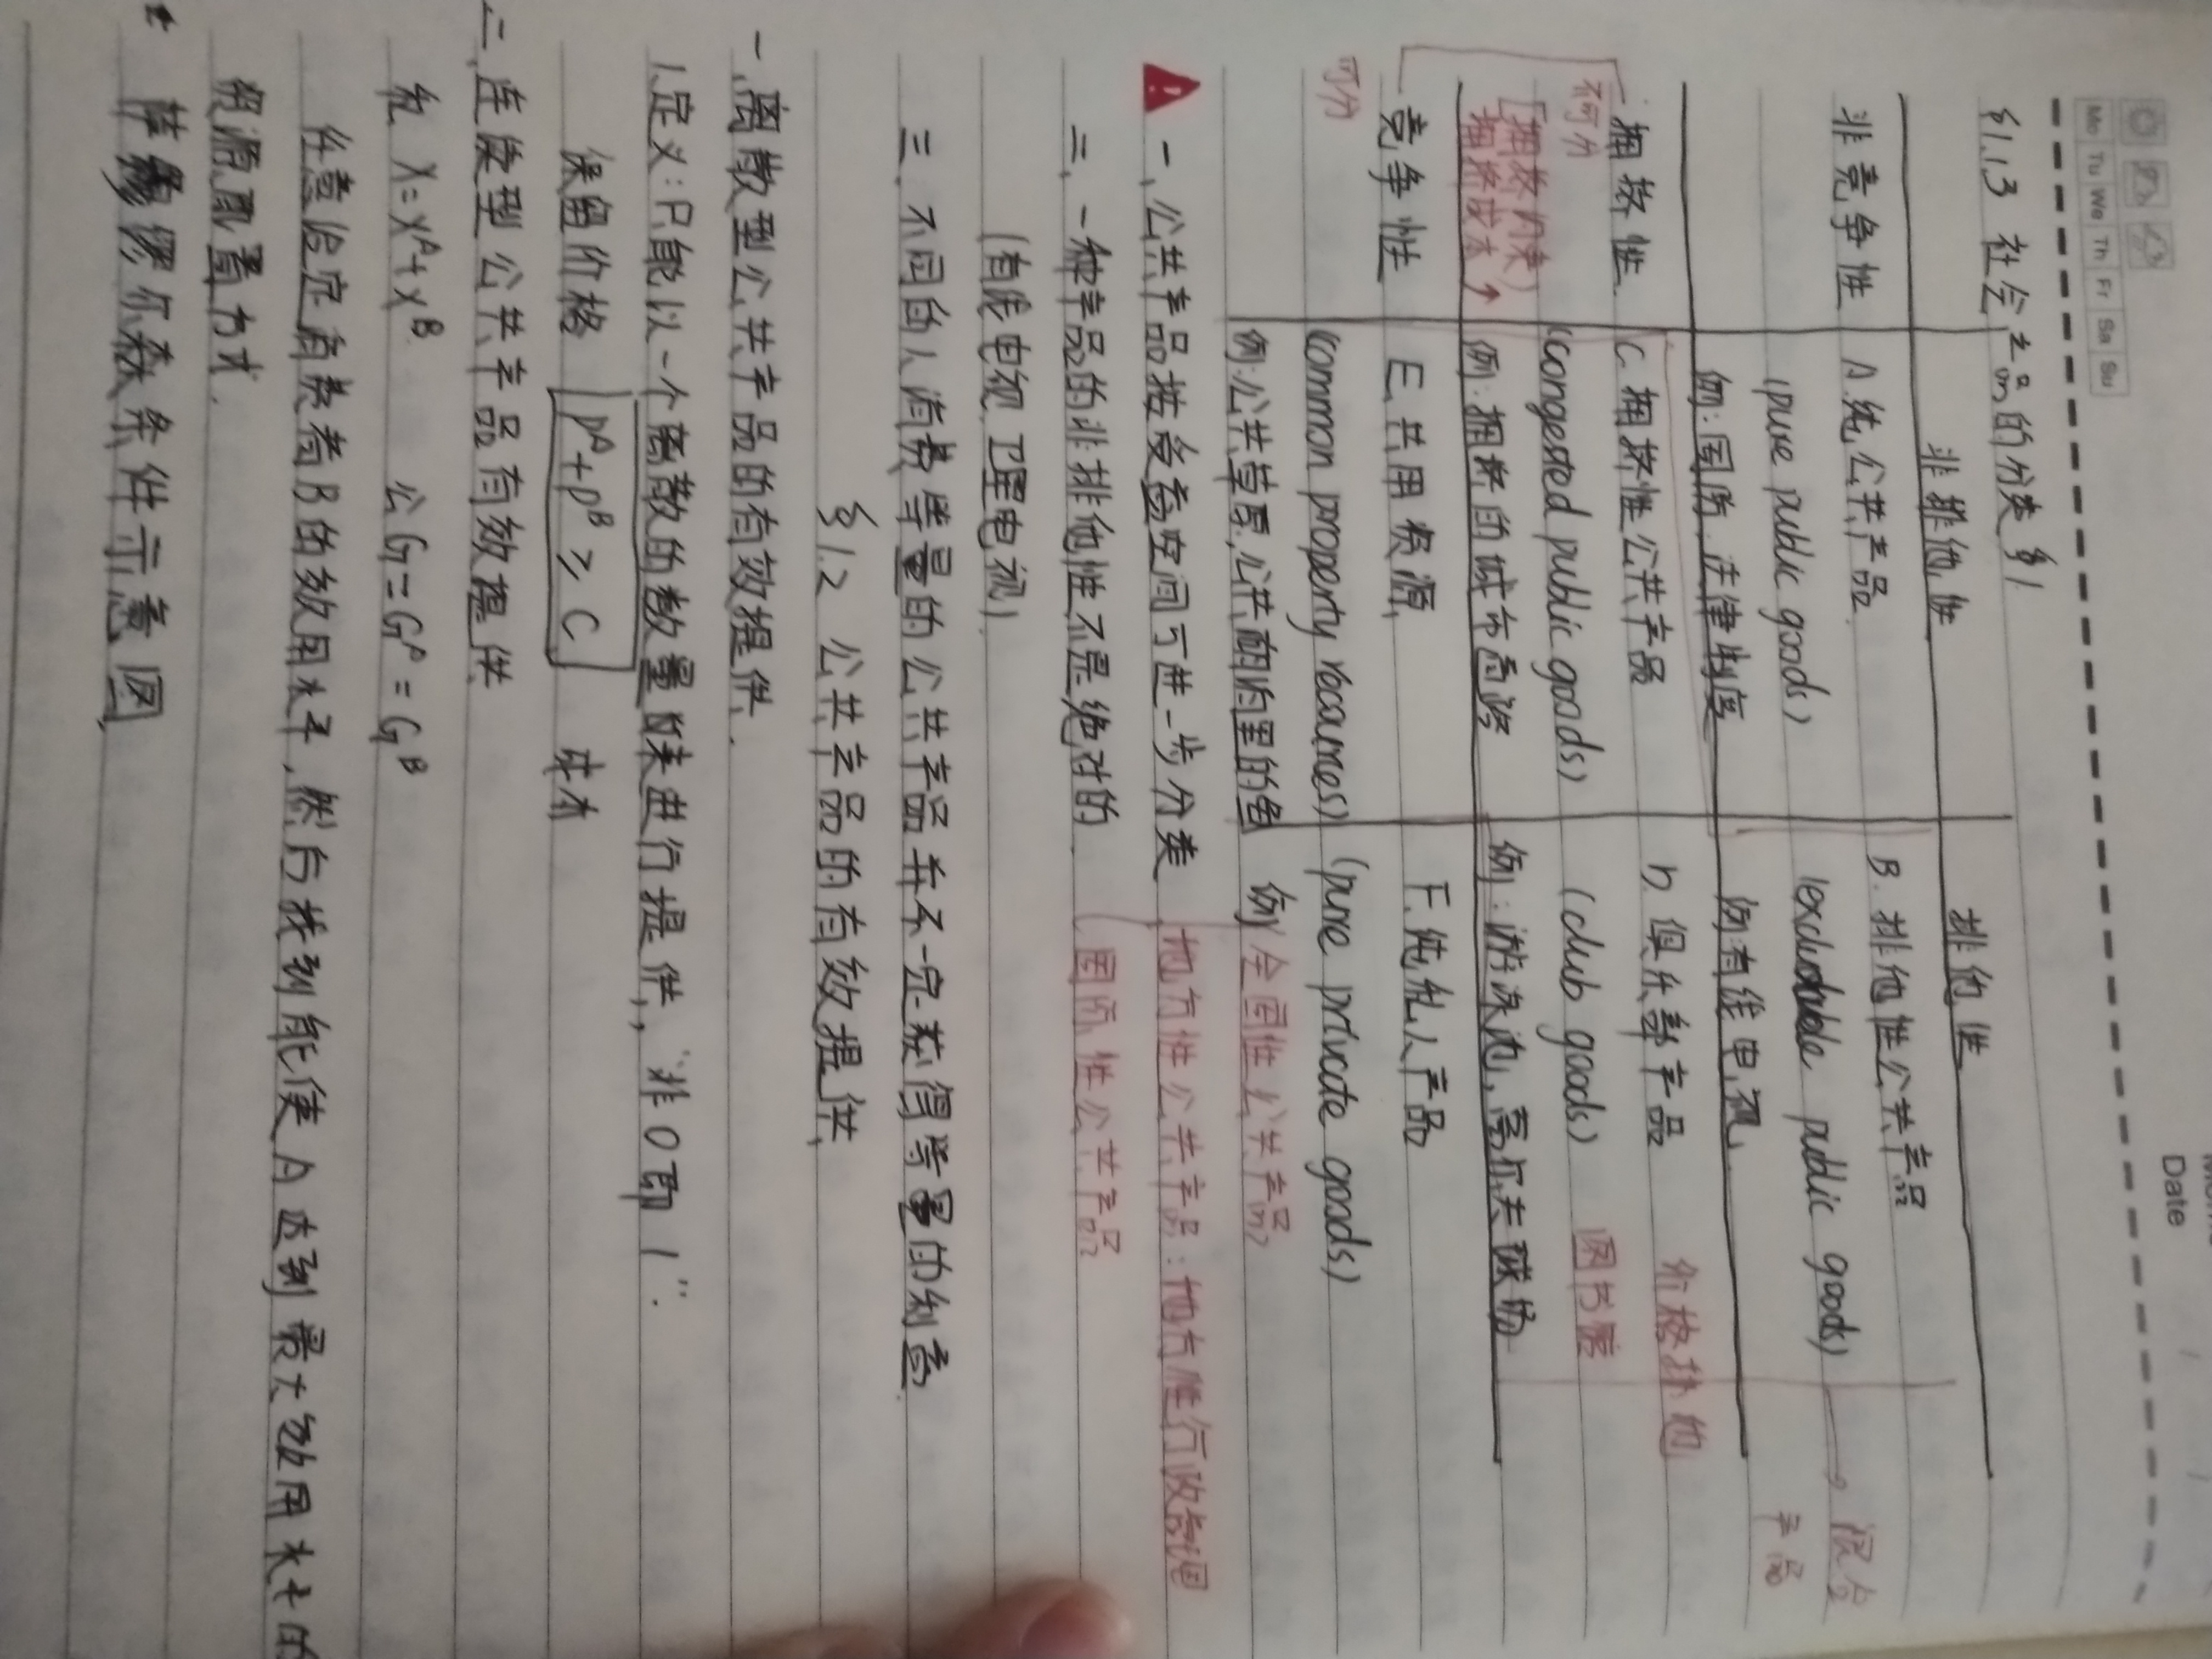 Mo Tu We Th Fr Sa Su
Date
§1.1.3 社会产品的分类 §1
非排他性 排他性
非竞争性 A.纯公共产品 B.排他性公共产品
(pure public goods) (excludable public goods) → 混合产品
例:国防,法律制度 例:有线电视
拥挤性 C.拥挤性公共产品 D.俱乐部产品 价格排他
不可分 (congested public goods) (club goods) 图书馆
[拥挤约束)
拥挤成本↑ 例:拥挤的城市道路 例:游泳池,高尔夫球场
竞争性 E.共用资源 F.纯私人产品
可分 (common property recourses) (pure private goods)
例:公共草原,公共酮内里的鱼 例 全国性公共产品
一,公共产品按受益空间可进一步分类 地方性公共产品:地方性行政管理
二,一种产品的非排他性不是绝对的 国际性公共产品
(有线电视,卫星电视)
三.不同的人消费等量的公共产品并不一定获得等量的利益
§1.2 公共产品的有效提供
一.离散型公共产品的有效提供.
1.定义:只能以一个离散的数量来进行提供,“非0即1”.
保留价格 P^A+P^B ≥ C 成本
二.连续型公共产品有效提供
私 X=X^A+X^B 公 G=G^A=G^B
任意给定消费者B的效用水平,然后找到能使A达到最大效用水平的
资源配置方式.
萨缪尔森条件示意图